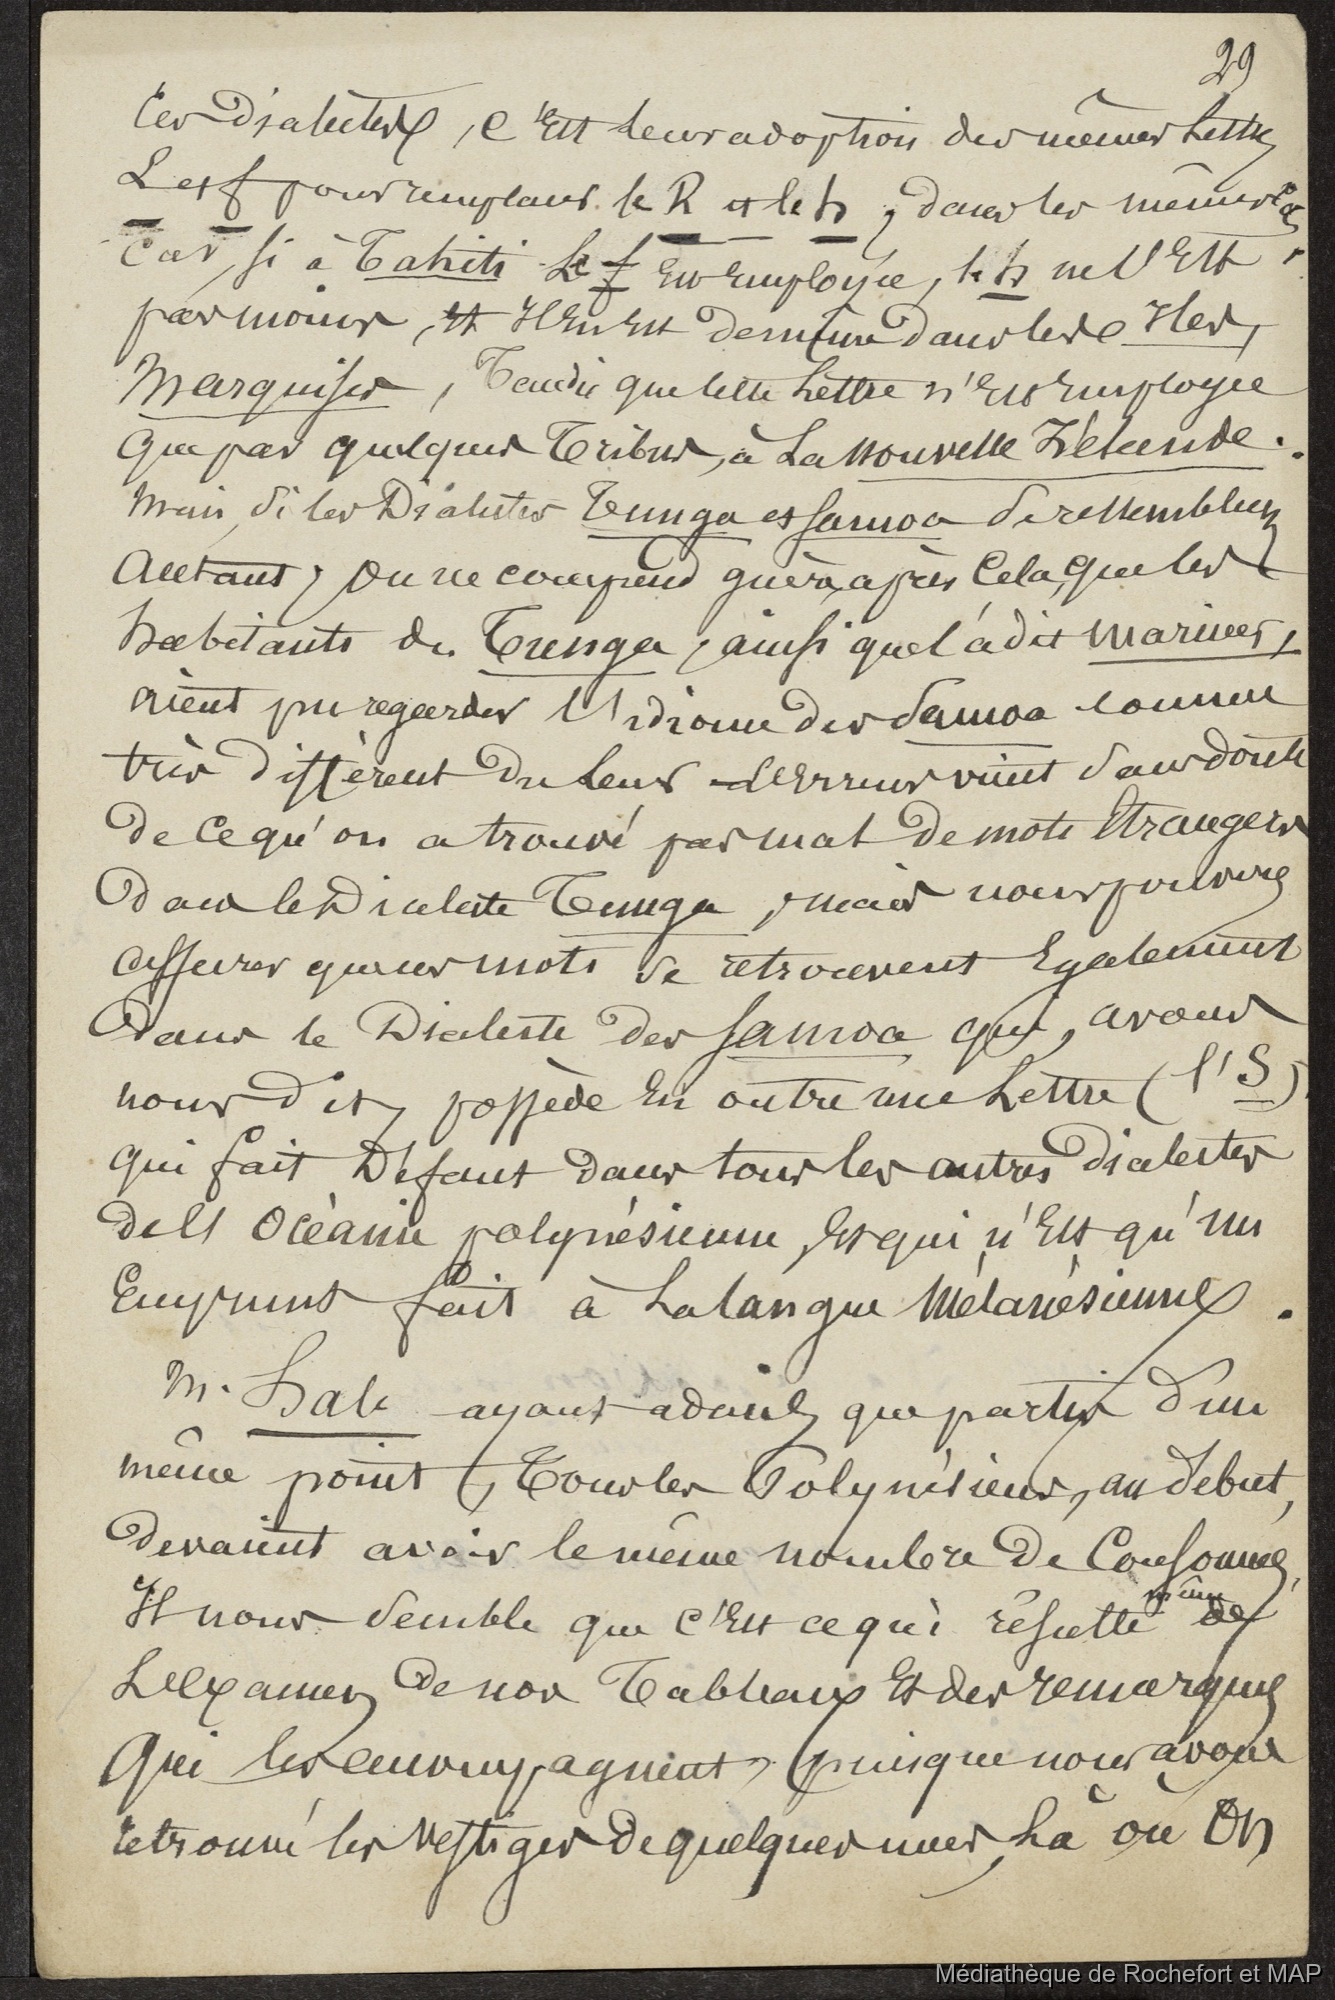 29
ces Dialectes, C'Est leur adoption des mêmes Lettres
L et f pour remplacer le R et le h, dans les mêmes cas,
Car, si à Tahiti Le f Est Employée, le h ne l'Est
pas moins, et Il En Est de même dans les Iles
Marquises, Tandis que cette Lettre n'Est Employée
que par quelques Tribus, à La Nouvelle Zélande.
Mais, si les Dialectes Tunga et Samoa se ressemblent
Autant, On ne comprend guère, après Cela, que les
habitants de Tunga, ainsi que l'a dit Mariner,
aient pu regarder l'idiome des Samoa comme
très différent du leur. L'Erreur vient sans doute
de ce qu'on a trouvé pas mal de mots Etrangers
Dans le Dialecte Tunga, mais nous pouvons
assurer que ces mots se retrouvent Egalement
Dans le Dialecte des Samoa qui, avons
nous dit, possède En outre une Lettre (l'S)
qui fait Défaut dans tous les autres dialectes
de l'Océanie polynésienne, Et qui n'Est qu'un
Emprunt fait à La langue Mélanésienne.
M. Hale ayant admis que partis d'un
même point, Tous les Polynésiens, au début,
devaient avoir le même nombre de Consonnes,
Il nous semble que C'Est ce qui résulte même de
L'Examen de nos Tableaux Et des remarques
Qui les accompagnent, puisque nous avons
retrouvé les Vestiges de quelques unes, Là où On
Médiathèque de Rochefort et MAP